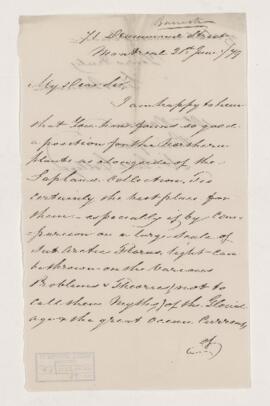 Barnston
71 Drummond Street
Montreal 21st June /79
My Dear Sir,
I am happy to learn
that you have found so good
a position for the Northern
plants as alongside of the
Lapland Collection. It is
certainly the best place for
them - especially if by Com-
parison on a large scale of
Sub Arctic Floras, light can
be thrown on the various
Problems & Theories (not to
call them Myths) of the Glacial
age & the great Ocean Currents
of